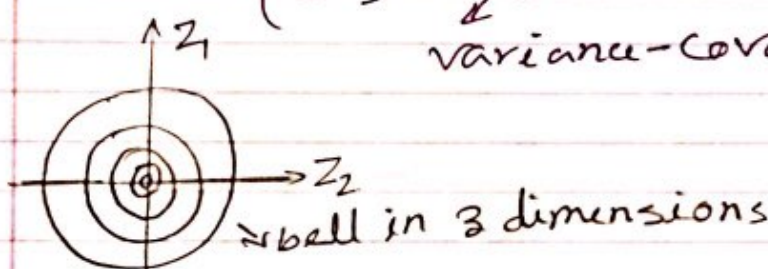 variance-cov
Z1
Z2
bell in 3 dimensions